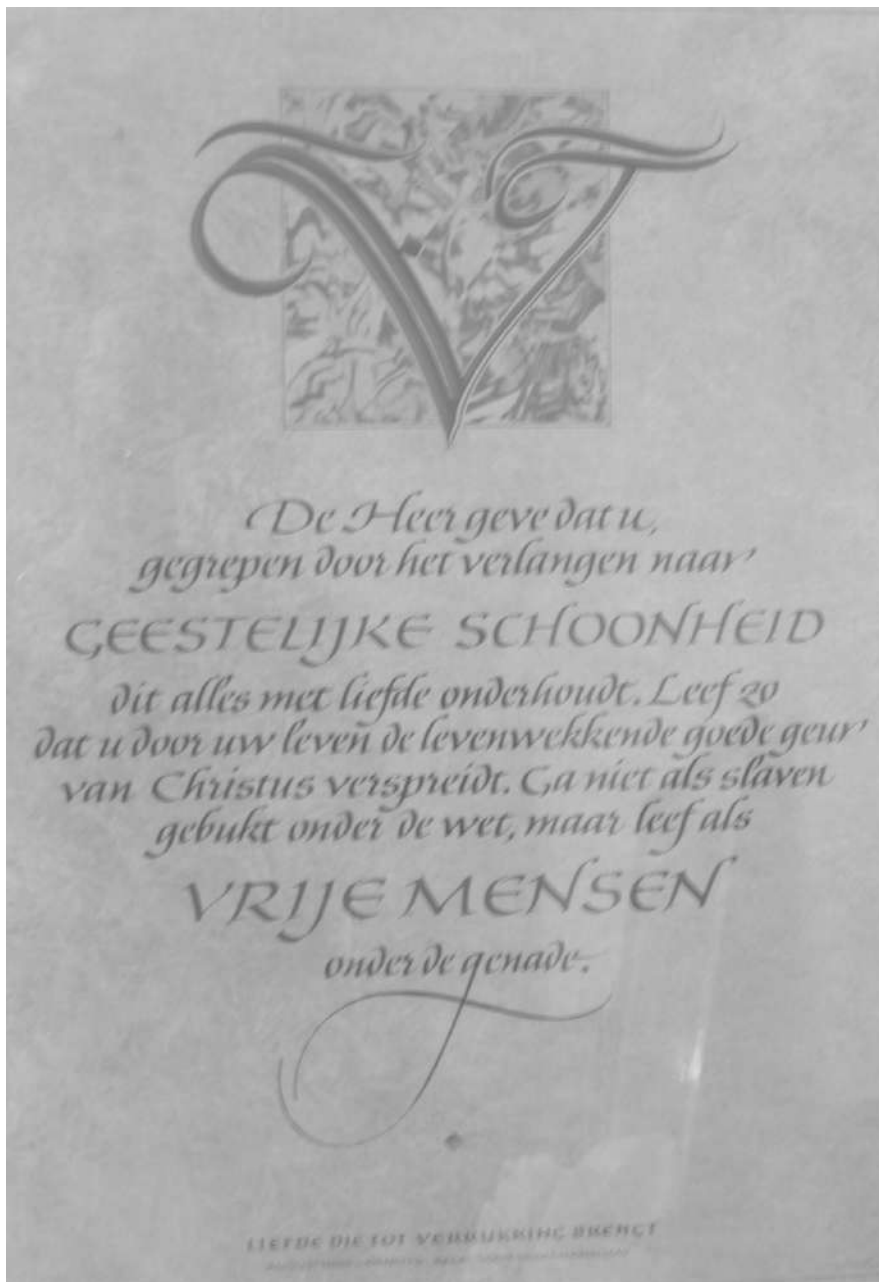 V
De Heer geve dat u,
gegrepen door het verlangen naar
GEESTELIJKE SCHOONHEID
dit alles met liefde onderhoudt. Leef zo
dat u door uw leven de levenwekkende goede geur
van Christus verspreidt. Ga niet als slaven
gebukt onder de wet, maar leef als
VRIJE MENSEN
onder de genade.
LIEFDE DIE TOT VERRUKKING BRENGT